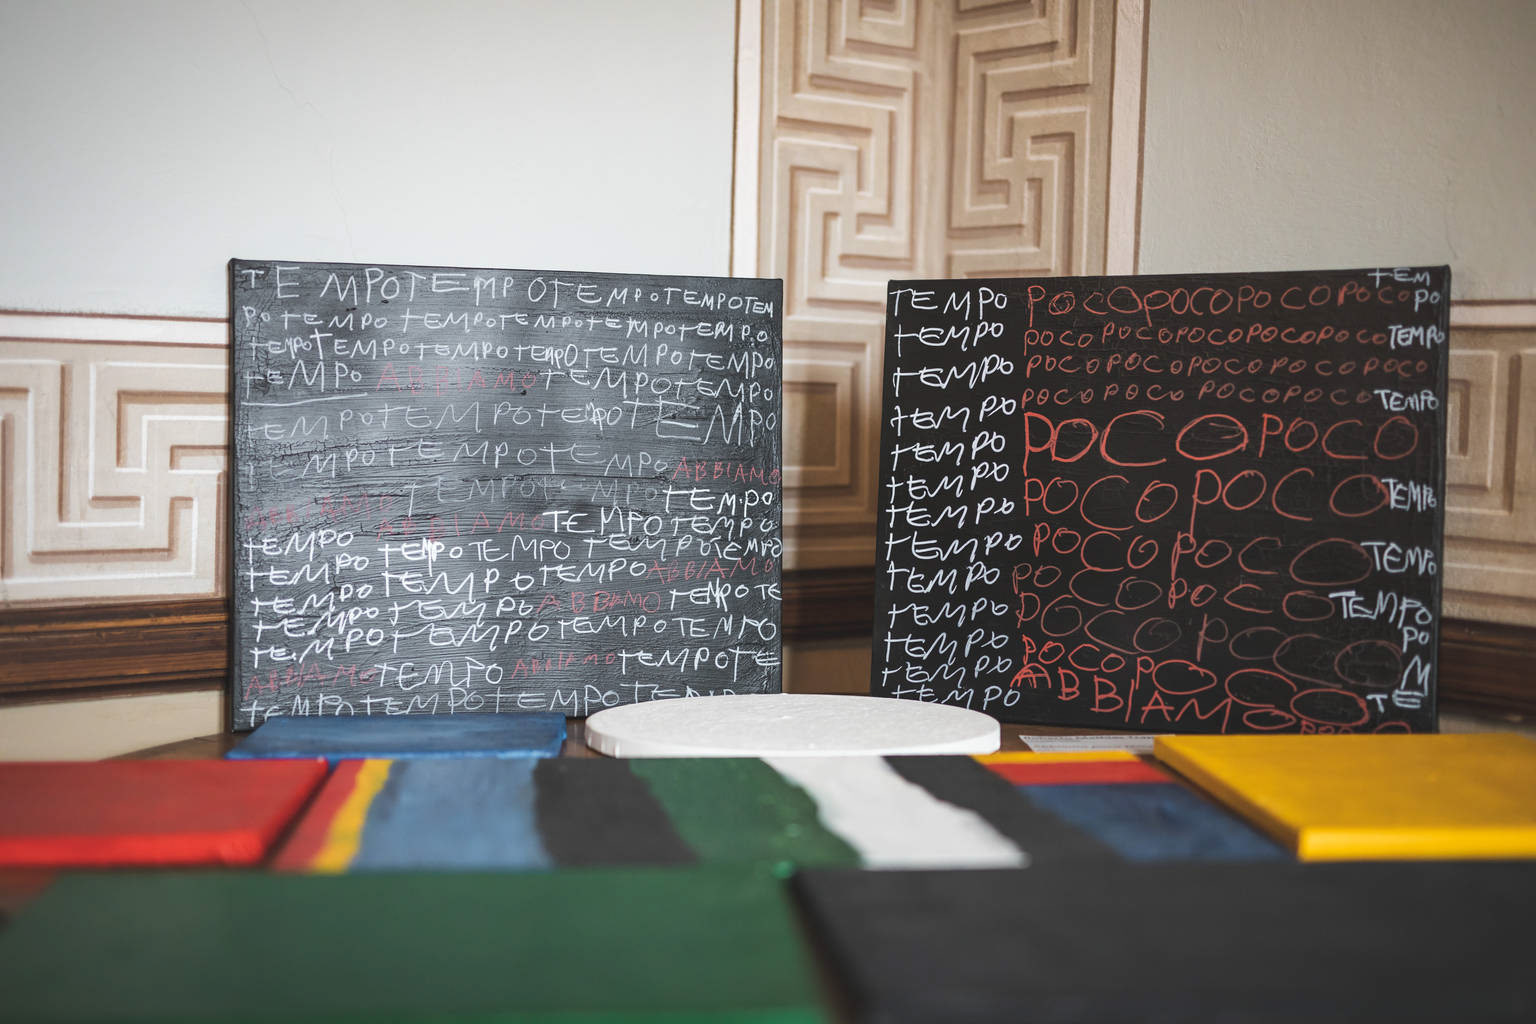 TEMPOTEMPOTEMPOTEMPOTEM
PO TEMPO TEMPOTEMPOTEMPOTEMPO
TEMPOTEMPOTEMPOTEMPOTEMPOTEMPO
TEMPO ABBIAMO TEMPOTEMPO
TEMPOTEMPOTEMPOTEMPO
TEMPOTEMPOTEMPO ABBIAMO
TEMPOTEMPO TEMPO
ABBIAMO TEMPOTEMPO
TEMPO TEMPO TEMPO TEMPOTEMPO
TEMPO TEMPO TEMPO ABBIAMO
TEMPO TEMPO ABBIAMO TEMPO TE
TEMPO TEMPO TEMPO TEMPO
TEMPO
ABBIAMO TEMPO ABBIAMO TEMPOTE
TEMPOTEMPOTEMPOTEMPO
TEM
TEMPO POCOPOCOPOCOPOCO PO
TEMPO POCO POCOPOCOPOCOPOCO TEMPO
TEMPO POCO POCO POCOPOCOPOCO
TEMPO POCO POCO POCO POCO TEMPO
TEMPO POCO POCO
TEMPO
TEMPO POCO POCO TEMPO
TEMPO
TEMPO POCO POCO TEMPO
TEMPO POCO POCO TEMPO
TEMPO POCO POCO PO
TEMPO POCO PO M
TEMPO ABBIAMO TE
TEMPO